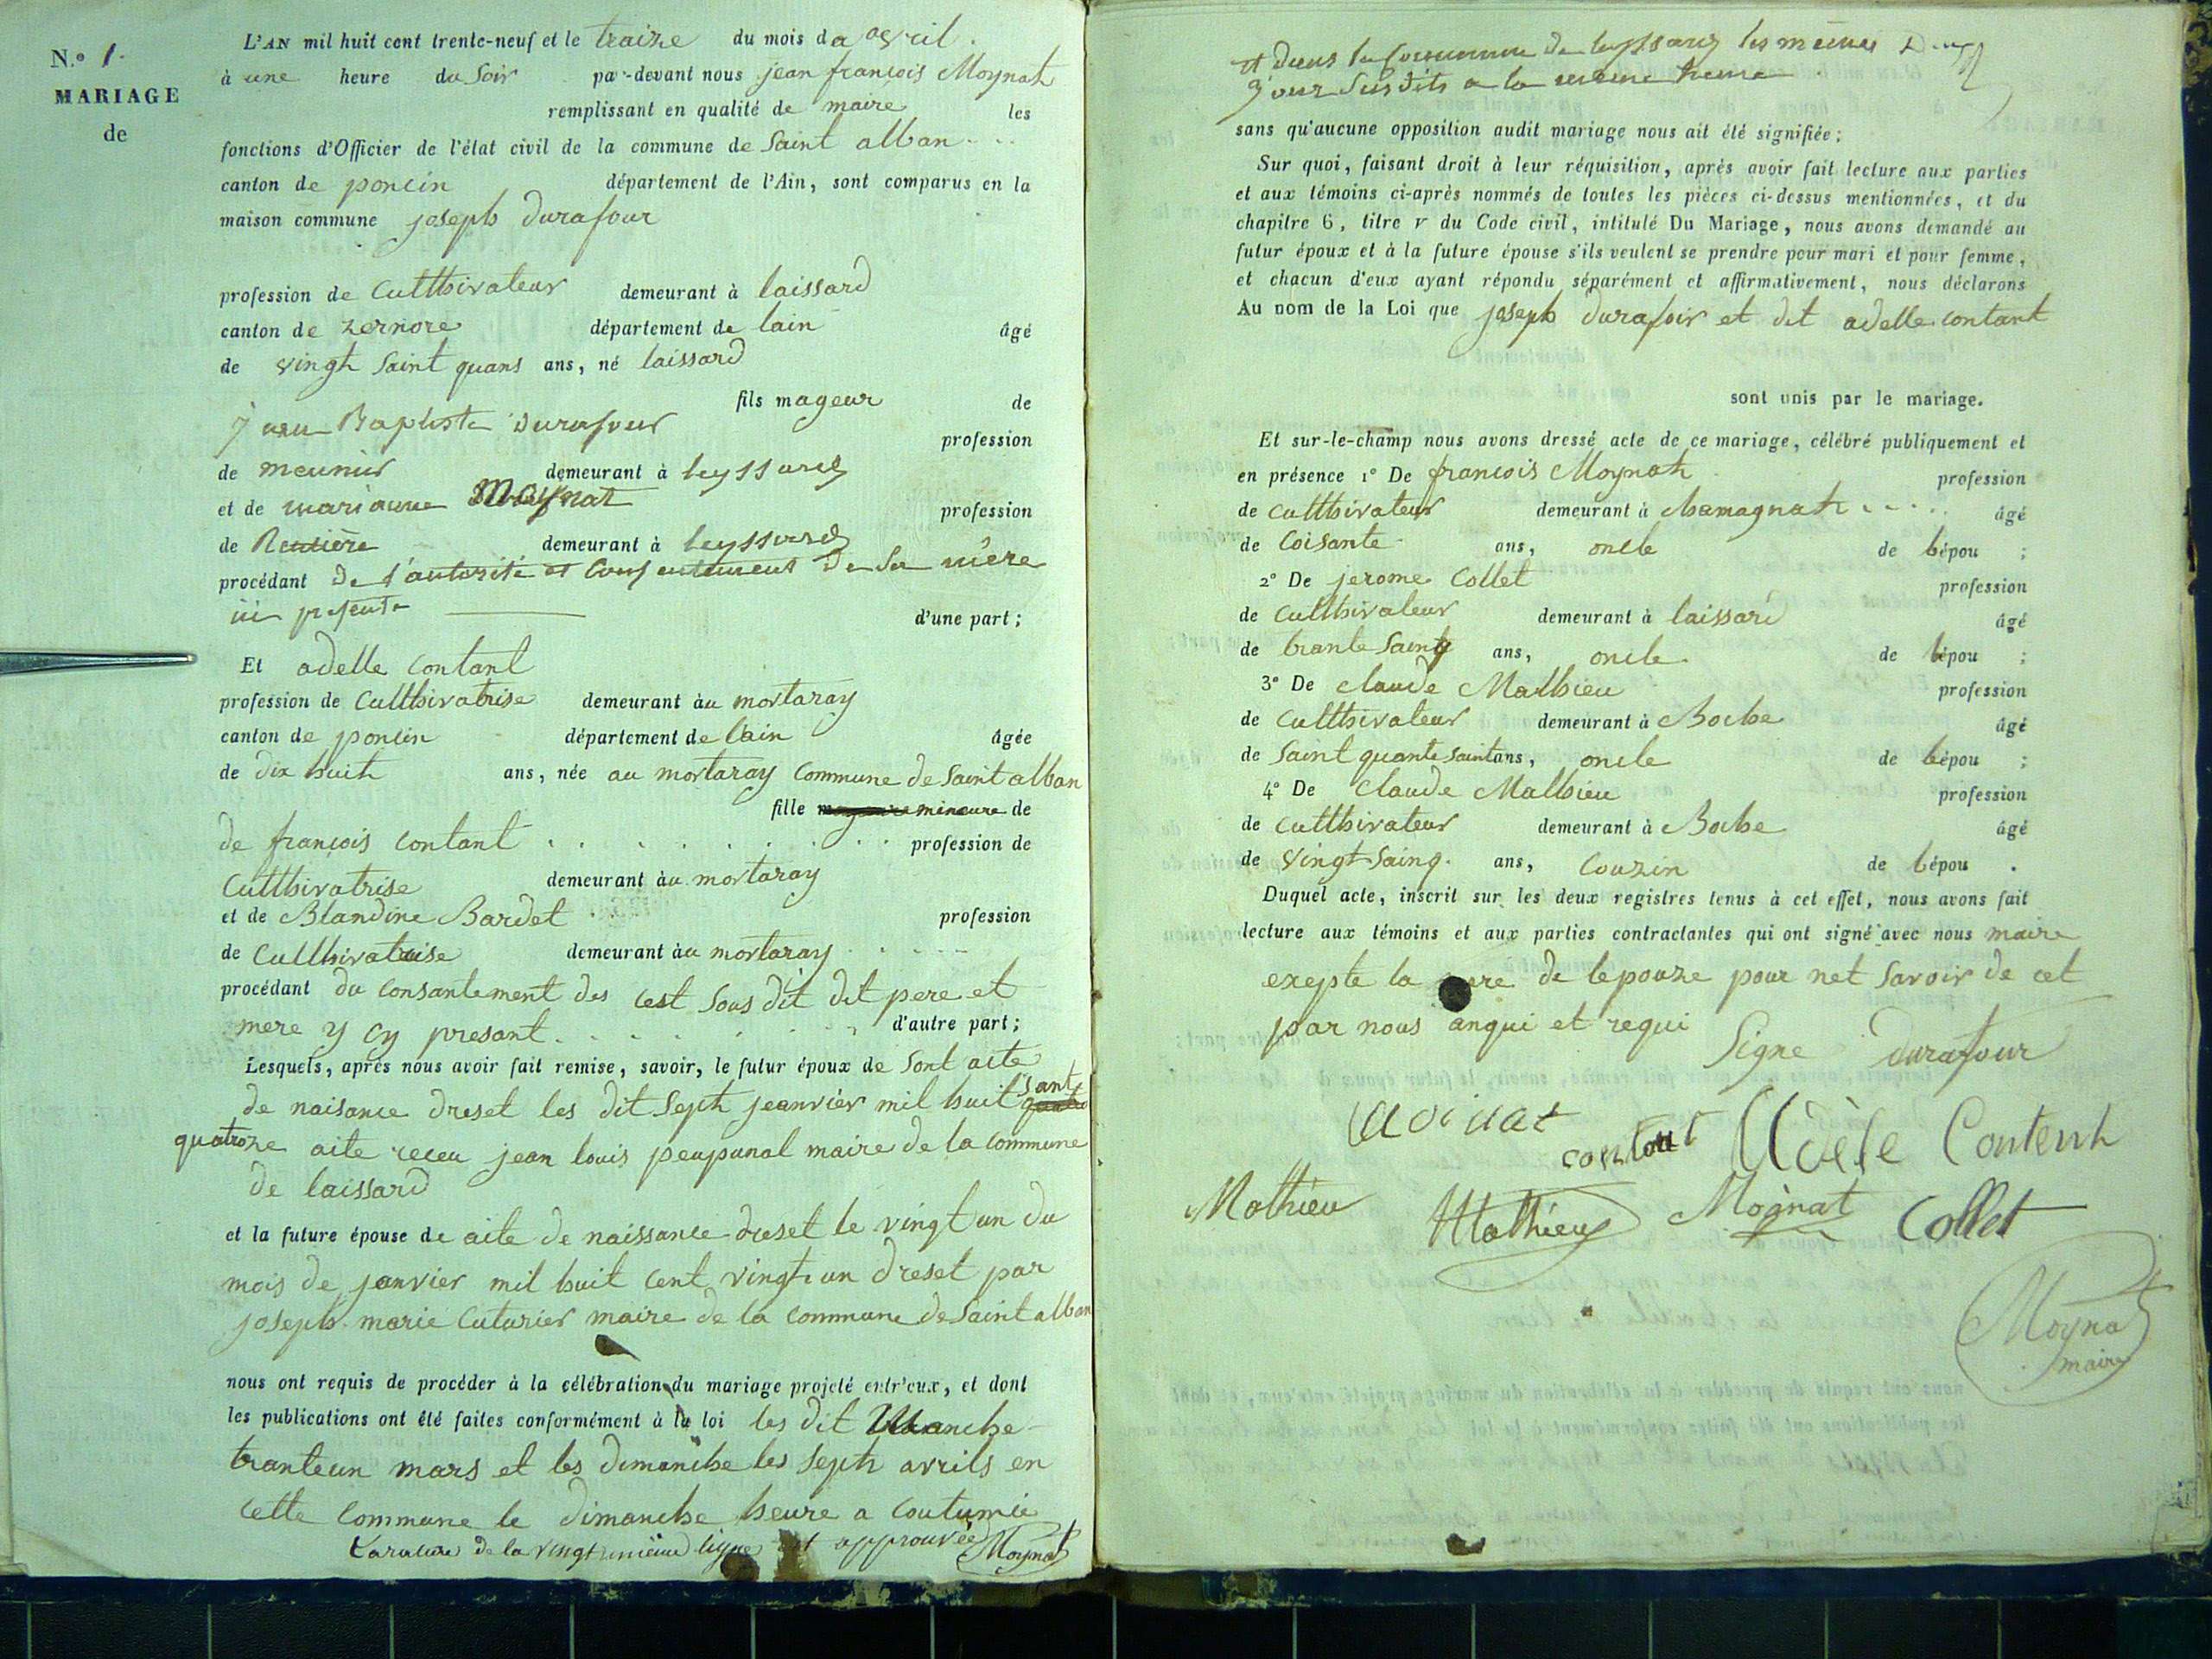 N.º 1.
MARIAGE
de
L'AN mil huit cent trente-neuf et le traize du mois da avril.
à une heure du Soir par-devant nous jean françois Moynat
remplissant en qualité de maire les
fonctions d'Officier de l'état civil de la commune de Saint alban
canton de poncin département de l'Ain, sont comparus en la
maison commune joseph durafour
profession de Culthivateur demeurant à laissard
canton de zernore département de lain âgé
de vingh Saint quans ans, né laissard
fils mageur de
jean Baptiste Durafour
profession
de meunier demeurant à leyssard
et de marianne Moynat
profession
de Rentière demeurant à leyssard
procédant de l'autorité et Consentement de Sa mère
ici presente d'une part;
Et adelle contant
profession de Culthivatrise demeurant àu mortaray
canton de poncin département de lain âgée
de dix huith ans, née au mortaray Commune de Saint alban
fille mineure de
de françois contant profession de
Culthivatrise demeurant àu mortaray
et de Blandine Bardet profession
de Culthivatraise demeurant àu mortaray
procédant du consantement des cest Sous dit dit pere et
mere y cy presant d'autre part;
Lesquels, après nous avoir fait remise, savoir, le futur époux de Sont aite
de naisance dreset les dit Septh jeanvier mil huit Sant
quatroze aite receu jean louis peupunal maire de la Commune
de laissard
et la future épouse de aite de naissance dreset le vingt un du
mois de janvier mil huit cent vingt un dreset par
joseph marie Cuturier maire de la commune de Saint alban
nous ont requis de procéder à la célébration du mariage projeté entr'eux, et dont
les publications ont été faites conformément à la loi les dit Manche
tranteun mars et les dimanche les septh avrils en
cette commune le dimanche heure a coutumie
La rature de la vingt unième ligne est approuvée Moynat
et dans la Commune de leyssard les mêmes Deux
jour Susdits a la meme heure
sans qu'aucune opposition audit mariage nous ait été signifiée;
Sur quoi, faisant droit à leur réquisition, après avoir fait lecture aux parties
et aux témoins ci-après nommés de toutes les pièces ci-dessus mentionnées, et du
chapitre 6, titre v du Code civil, intitulé Du Mariage, nous avons demandé au
futur époux et à la future épouse s'ils veulent se prendre pour mari et pour femme,
et chacun d'eux ayant répondu séparément et affirmativement, nous déclarons
Au nom de la Loi que joseph durafoir et dit adelle contant
sont unis par le mariage.
Et sur-le-champ nous avons dressé acte de ce mariage, célébré publiquement et
en présence 1º De francois Moynath profession
de culthivateur demeurant à chamagnath âgé
de Coisante ans, oncle de lépou ;
2º De jerome Collet profession
de culthivateur demeurant à laissard âgé
de trante Sainq ans, oncle de lépou ;
3º De claude Mathieu profession
de Culthivateur demeurant à Boche âgé
de Saint quante saint ans, oncle de lépou ;
4º De Claude Mathieu profession
de culthivateur demeurant à Boche âgé
de vingt Sainq ans, Couzin de lépou .
Duquel acte, inscrit sur les deux registres tenus à cet effet, nous avons fait
lecture aux témoins et aux parties contractantes qui ont signé avec nous maire
exepte la de lepouze pour net Savoir de cet
par nous anqui et requi
Signe Durafour
Moinat contant Adèle Contenh
Mathieu Mathieu Moinat Collet
Moynat
maire